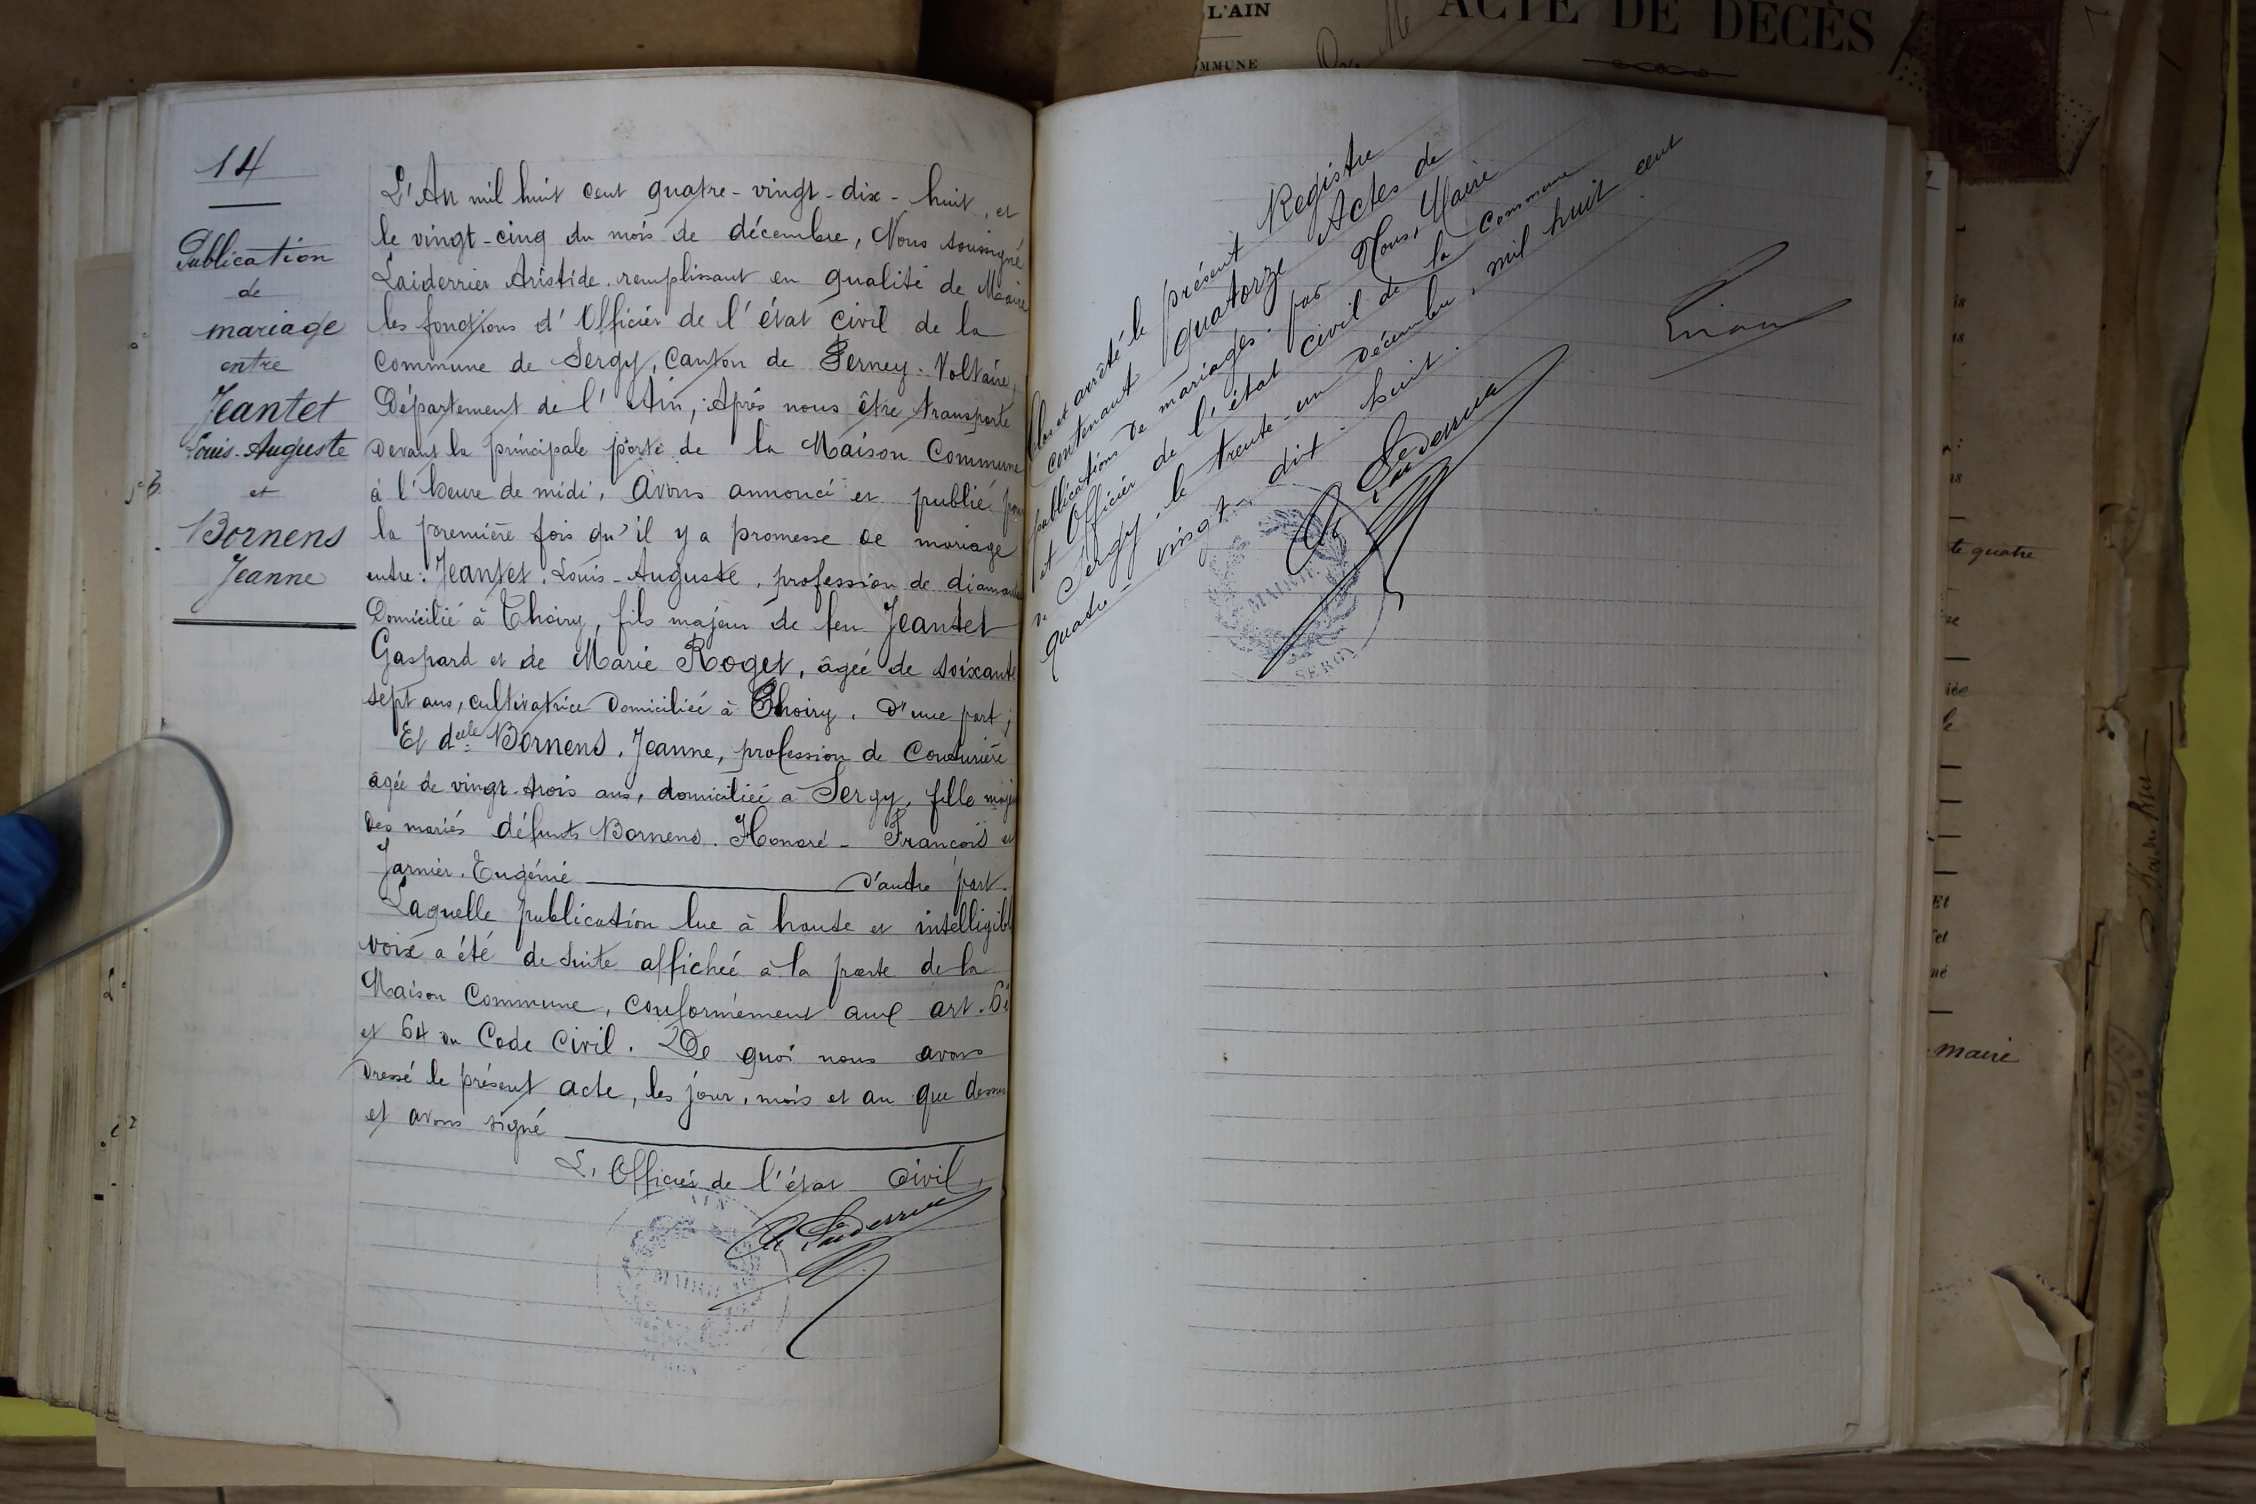 14
Publication
de
mariage
entre
Jeantet
Louis-Auguste
et
Bornens
Jeanne
L'An mil huit cent quatre-vingt-dix-huit, et
le vingt-cinq du mois de décembre, Nous soussigné
Laiderrier Aristide remplissant en qualité de Maire
les fonctions d'Officier de l'état civil de la
Commune de Sergy, Canton de Ferney-Voltaire,
Département de l'Ain, Après nous être transporté
devant la principale porte de la Maison Commune
à l'heure de midi, avons annoncé et publié pour
la première fois qu'il y a promesse de mariage
entre: Jeantet, Louis-Auguste, profession de
Domicilié à Thoiry, fils majeur de feu Jeantet
Gaspard et de Marie Roget, âgée de soixante
sept ans, cultivatrice domiciliée à Thoiry, d'une part;
Et delle Bornens, Jeanne, profession de Couturière
âgée de vingt-trois ans, domiciliée a Sergy, fille
des mariés défunts Bornens. Honoré-François et
Jarnier. Eugénie d'autre part.
Laquelle publication lue à haute et intelligible
voix a été de suite affichée à la porte de la
Maison Commune, conformément aux art. 63
et 64 du Code Civil. De quoi nous avons
dressé le présent acte, les jour, mois et an que dessus
et avons signé
L'Officier de l'état civil,
Clos et arrêté le présent Registre
contenant quatorze Actes de
publications de mariages par Nous, Maire
et Officier de l'état civil de la Commune
de Sergy, le trente-un décembre, mil huit cent
quatre-vingt-dix-huit.
MAIRIE
SERGY
L'AIN
COMMUNE
ACTE DE DÉCÈS
te quatre
Et
maire